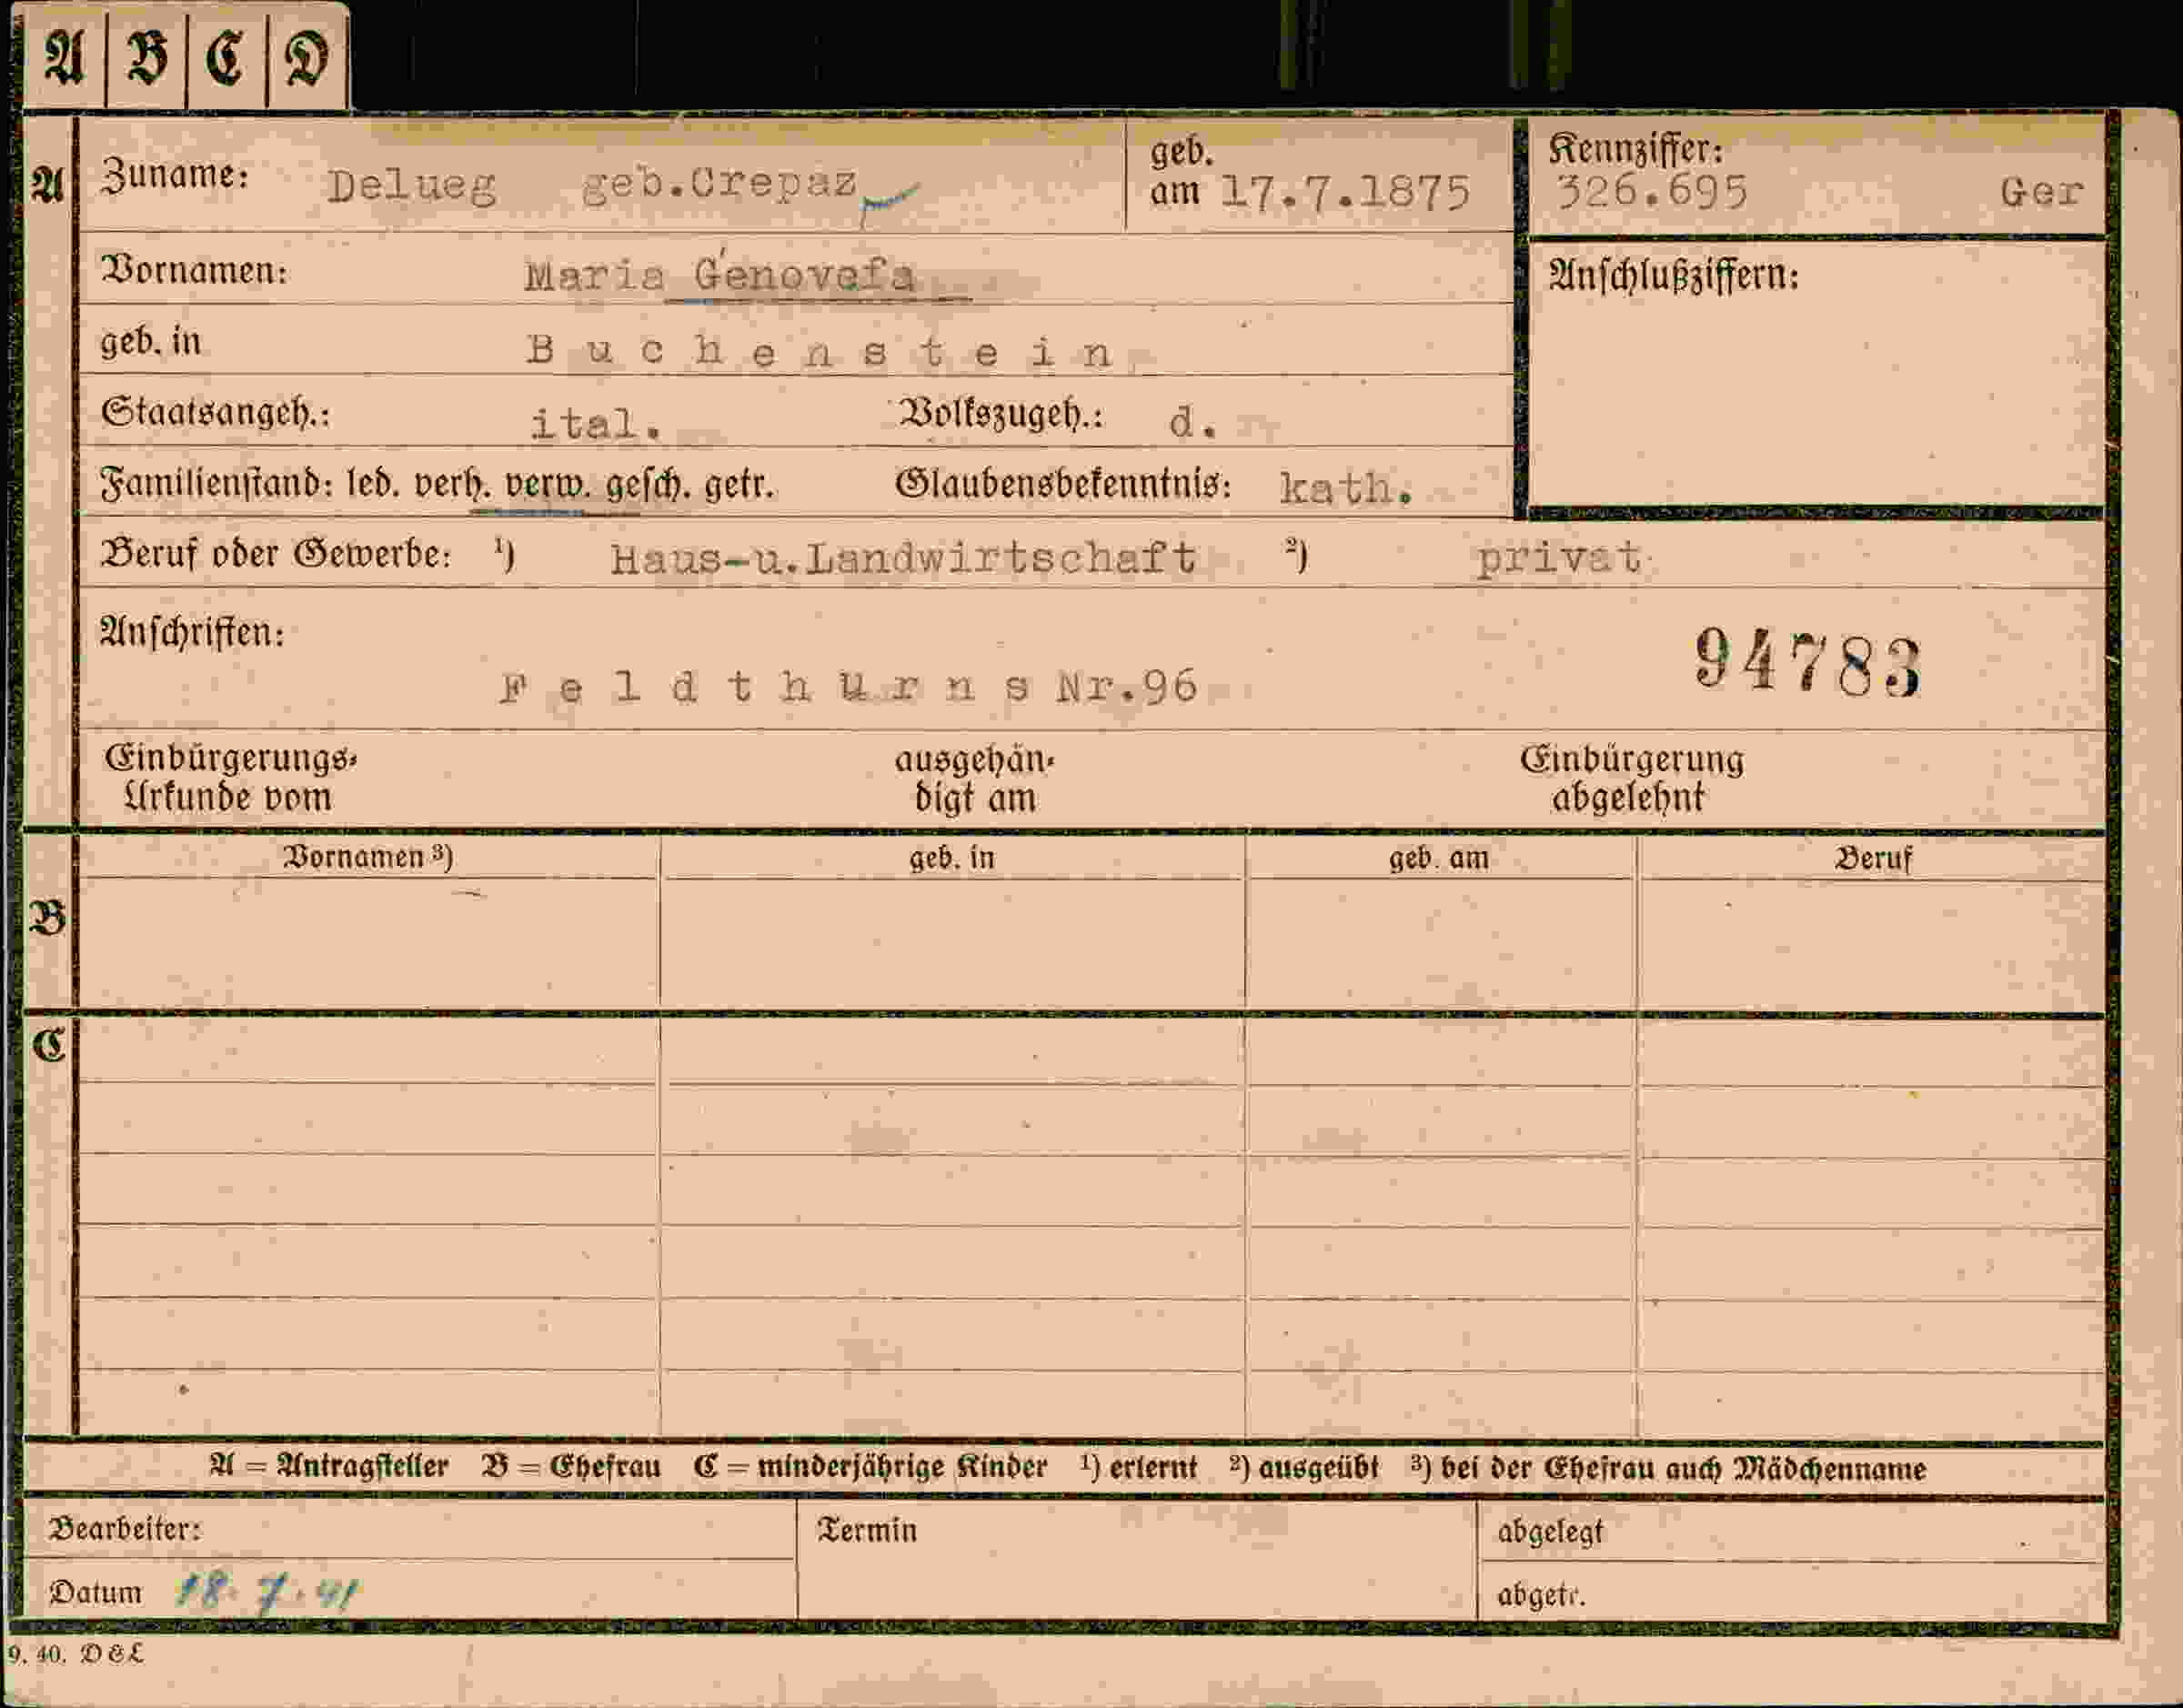 A B C D
A Zuname: Delueg geb.Crepaz geb. am 17.7.1875 Kennziffer: 326.695 Ger
Vornamen: Maria Genovefa Anschlußziffern:
geb. in Buchenstein
Staatsangeh.: ital. Volkszugeh.: d.
Familienstand: led. verh. verw. gesch. getr. Glaubensbekenntnis: kath.
Beruf oder Gewerbe: 1) Haus-u.Landwirtschaft 2) privat
Anschriften:
94783
Feldthurns Nr.96
Einbürgerungs- ausgehän- Einbürgerung
Urkunde vom digt am abgelehnt
Vornamen 3) geb. in geb. am Beruf
B
C
A = Antragsteller B = Ehefrau C = minderjährige Kinder 1) erlernt 2) ausgeübt 3) bei der Ehefrau auch Mädchenname
Bearbeiter: Termin abgelegt
Datum 18.7.41 abgetr.
9. 40. D&L